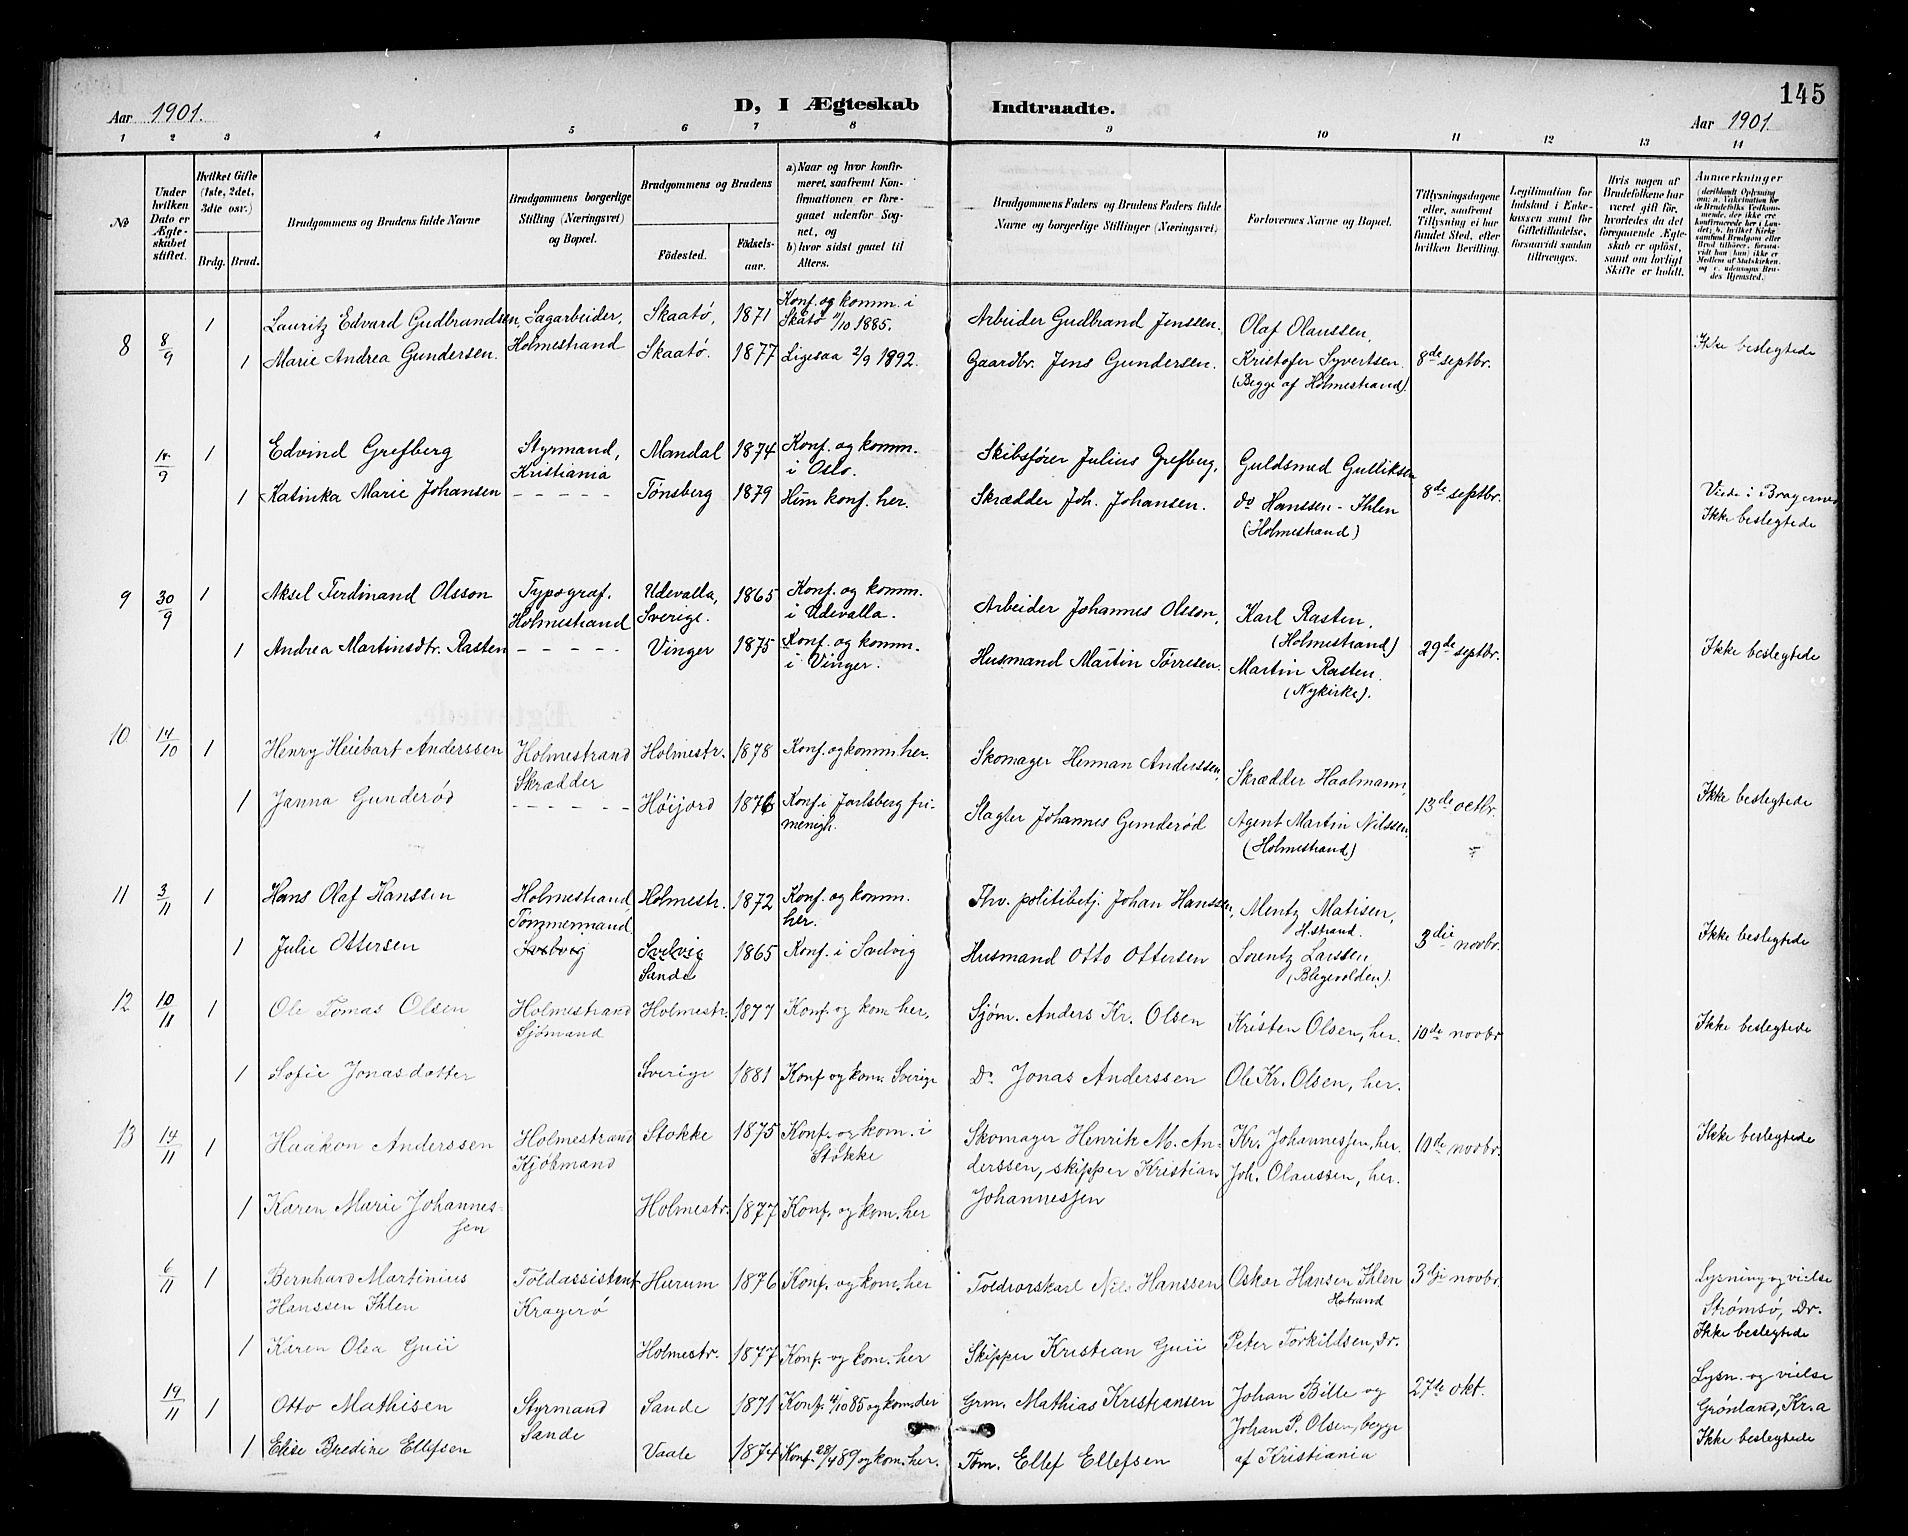 145
Aar 1901. D, I Ægteskab Indtraadte. Aar 1901.
1 2 3 4 5 6 7 8 9 10 11 12 13 14
№
Under hvilken Dato er Ægteskabet stiftet.
Hvilket Gifte (1ste, 2det, 3die osv.)
Brdg. Brud.
Brudgommens og Brudens fulde Navne
Brudgommens borgerlige Stilling (Næringsvei) og Bopæl.
Brudgommens og Brudens
Födested. Födselsaar.
a) Naar og hvor konfirmeret, saafremt Konfirmationen er foregaaet udenfor Sognet, og
b) hvor sidst gaaet til Alters.
Brudgommens Faders og Brudens Faders fulde Navne og borgerlige Stillinger (Næringsvei)
Forlovernes Navne og Bopæl.
Tillysningsdagene eller, saafremt Tillysning ei har fundet Sted, efter hvilken Bevilling.
Legitimation for Indskud i Enkekassen samt for Giftetilladelse, forsaavidt saadan tiltrænges.
Hvis nogen af Brudefolkene har været gift för, hvorledes da det foregaaende Ægteskab er oplöst, samt om lovligt Skifte er holdt.
Anmærkninger
8 8/9 1 Lauritz Edvard Gudbrandsen, Sagarbeider, Holmestrand Skaatø, 1871 Konf. og komm. i Skåtø 11/10 1885. Arbeider Gudbrand Jenssen. Olaf Olaussen,
1 Marie Andrea Gundersen. Skaatø. 1877 Ligesaa 2/9 1892. Gaardbr. Jens Gundersen. Kristofer Syvertsen. (Begge af Holmestrand) 8de septbr. Ikke beslegtede
/9 1 Edvind Grefberg Styrmand, Kristiania Mandal 1874 Konf. og komm. i Oslo. Skibsfører Julius Grefberg, Guldsmed Gulliksen
1 Katinka Marie Johansen - - - - - Tønsberg 1879 Hun konf. her. Skrædder Joh. Johansen. do Hanssen-Ihlen (Holmestrand) 8de septbr. Viede i Bragernes Ikke beslegtede
9 30/9 1 Aksel Ferdinand Olsson Typograf. Holmestrand Udevalla, Sverige. 1865 Konf. og komm. i Udevalla. Arbeider Johannes Olsson, Karl Rasten, (Holmestrand)
1 Andrea Martinsdtr. Rasten - - - - - Vinger 1875 Konf. og komm. i Vinger. Husmand Martin Torresen. Martin Rasten. (Nykirke). 29de septbr. Ikke beslegtede
10 14/10 1 Henry Heiebart Anderssen Holmestrand Skrædder Holmestr. 1878 Konf. og komm. her. Skomager Herman Anderssen, Skrædder Haalmann,
1 Janna Gunderød - - - - - Höijord 1876 Konf. i Jarlsberg frimenigh. Slagter Johannes Gunderød Agent Martin Nilssen, (Holmestrand) 13de octbr. Ikke beslegtede
11 3/11 1 Hans Olaf Hanssen Holmestrand Tömmermand. Holmestr. 1872 Konf. og komm. her. Fhv. politibetj. Johan Hanssen, Mentz Matisen, H.strand.
1 Julie Ottersen Svelvig Svelvig Sande 1865 Konf. i Svelvig Husmand Otto Ottersen Lorentz Larssen, 3die novbr. Ikke beslegtede
12 10/11 1 Ole Tomas Olsen Holmestrand Sjömand Holmestr. 1877 Konf. og kom. her, Sjøm. Anders Kr. Olsen Kristen Olsen, her. 10de novbr Ikke beslegtede
1 Sofie Jonasdatter Sverige 1881 Konf og kom. Sverige Do. Jonas Anderssen Ole Kr. Olsen, her.
13 14/11 1 Haakon Anderssen Holmestrand Kjöbmand Stokke 1875 Konf. og kom. i Stokke Skomager Henrik M. Anderssen, skipper Kristian Johannessen Kr. Johannessen, her. Joh. Olaussen, her. 10de novbr. Ikke beslegtede
1 Karen Marie Johannessen Holmestr. 1877 Konf. og kom. her
6/11 1 Bernhard Martinius Hanssen Ihlen Toldassistent Kragerø Hurum 1876 Konf. og kom. her Toldrorskarl Nils Hanssen Oskar Hansen Ihlen Hstrand 3dje novbr. Lysning og vielse Strømsø, Dr. Ikke beslegtede
1 Karen Olea Guii Holmestr. 1877 Konf. og kom. her Skipper Kristian Guii Peter Torkildsen, Dr.
19/11 1 Otto Mathisen Styrmand Sande Sande 1871 Konf. 4/10 85 og kom. der Grm. Mathias Kristiansen Johan Bille og Johan P. Olsen, begge af Kristiania 27de okt. Lysn. og vielse Grønland, Kr.a Ikke beslegtede
1 Elise Bredine Ellefsen Vaale 1874 Konf. 28/4 89 og kom. her. Töm. Ellef Ellefsen